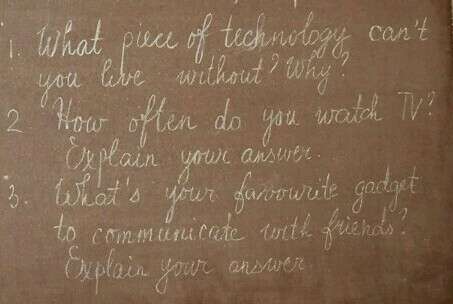 1. What piece of technology can't
you live without? Why?
2 How often do you watch TV?
Explain your answer.
3. What's your favourite gadget
to communicate with friends?
Explain your answer.